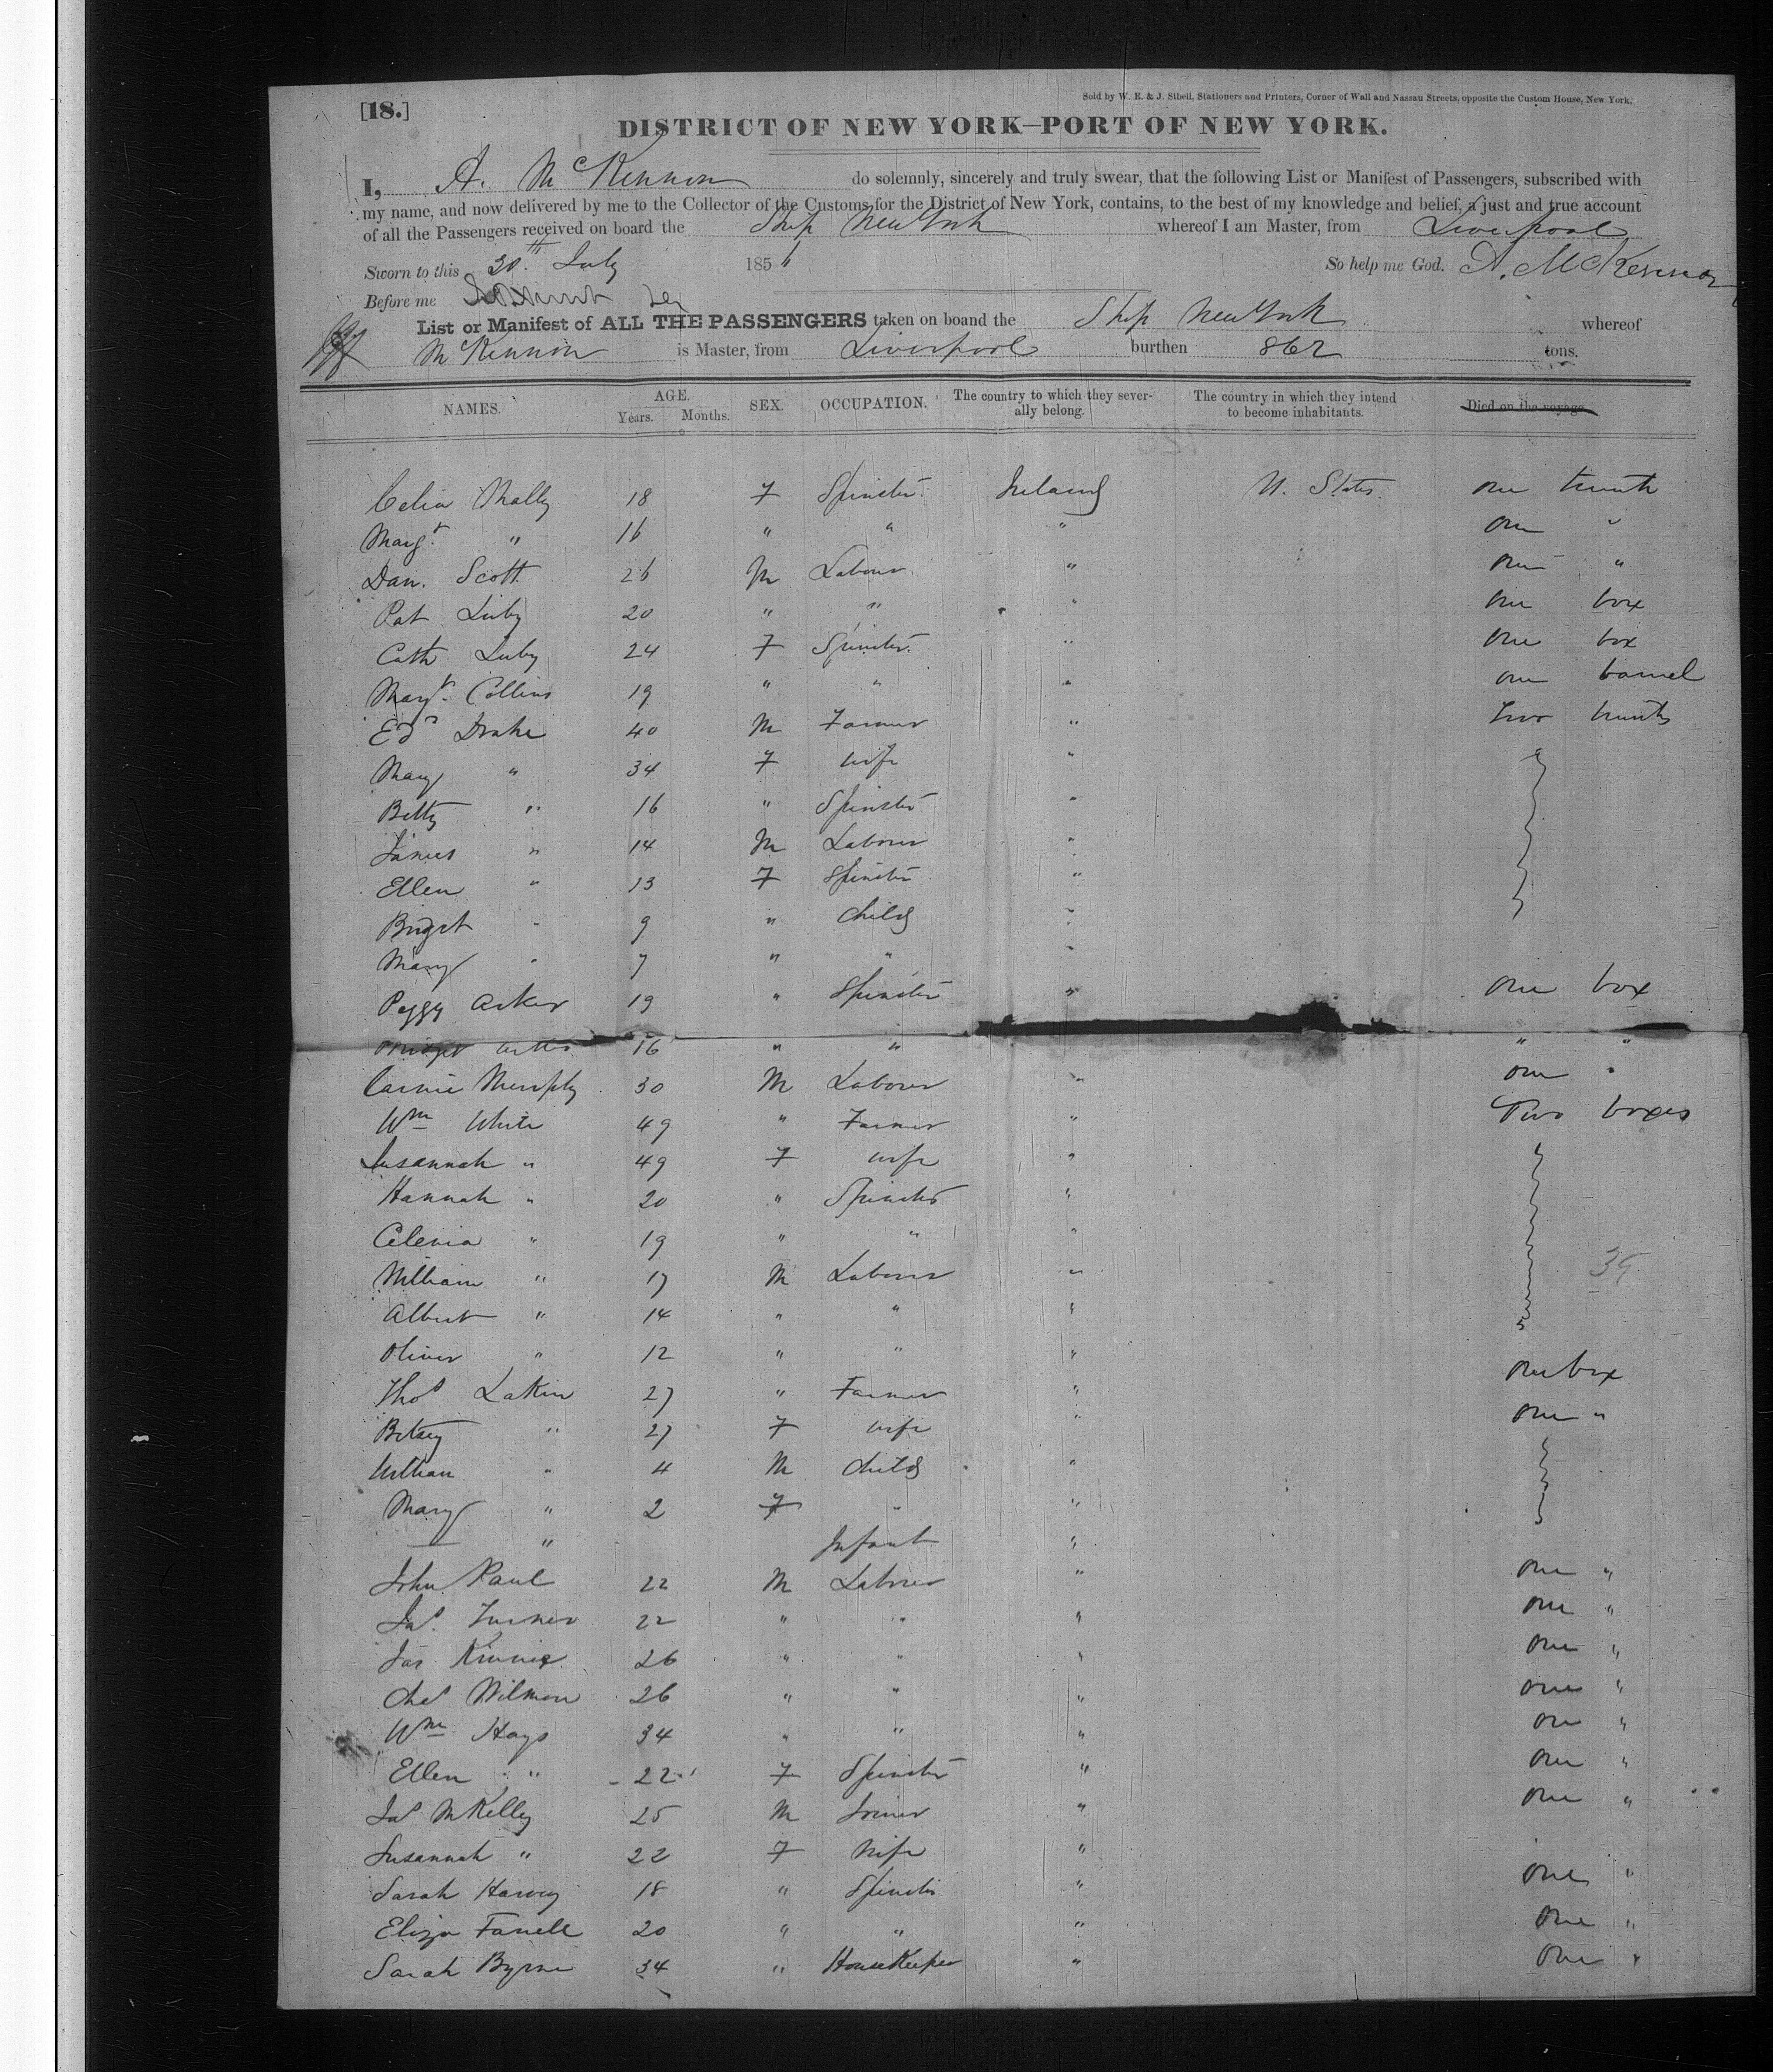 [18.]
Sold by W. E. & J. Sibell, Stationers and Printers, Corner of Wall and Nassau Streets, opposite the Custom House, New York.
DISTRICT OF NEW YORK—PORT OF NEW YORK.
I, A. McKinnon do solemnly, sincerely and truly swear, that the following List or Manifest of Passengers, subscribed with
my name, and now delivered by me to the Collector of the Customs for the District of New York, contains, to the best of my knowledge and belief, a just and true account
of all the Passengers received on board the Ship New York whereof I am Master, from Liverpool
Sworn to this 30th July 1856 So help me God. A. McKinnon
Before me
List or Manifest of ALL THE PASSENGERS taken on boand the Ship New York whereof
McKinnon is Master, from Liverpool burthen 862 tons.
NAMES. AGE. Years. Months. SEX. OCCUPATION. The country to which they severally belong. The country in which they intend to become inhabitants. Died on the voyage.
Celia Mally 18 F Spinster Ireland U. States. one trunk
Margt. " 16 " " " one "
Dan. Scott 26 M Labour " one "
Pat Luby 20 " " " one box
Cath Luby 24 F Spinster " one box
Margt. Collins 19 " " " one barrel
Edd Drake 40 M Farmer " Two trunks
Mary " 34 F wife "
Betty " 16 " Spinster "
James " 14 M Labourer "
Ellen " 13 F Spinster "
Bridget " 9 " Child "
Mary " 7 " " "
Peggy 19 " Spinster " one box
Bridget 16 " " " "
Murphy 30 M Labourer " one "
Wm White 49 " Farmer " Two boxes
Susannah " 49 F wife "
Hannah " 20 " Spinster "
Celenia " 19 " " "
William " 17 M Labourer " 39
Albert " 14 " " "
Oliver " 12 " " "
Thos Lakin 27 " Farmer " one box
Betsey " 27 F wife " one "
William " 4 M Child "
Mary " 2 F " "
— " Infant "
John Paul 22 M Labourer " one "
Jas. Turner 22 " " " one "
Jas 26 " " " one "
Chas Wilmon 26 " " " one "
Wm Hays 34 " " " one "
Ellen " 22 F Spinster " one "
Jas McKelly 25 M Joiner " one "
Susannah " 22 F Wife "
Sarah Harvey 18 " Spinster " one "
Eliza Farrell 20 " " " One "
Sarah Byrne 34 " HouseKeeper " One "